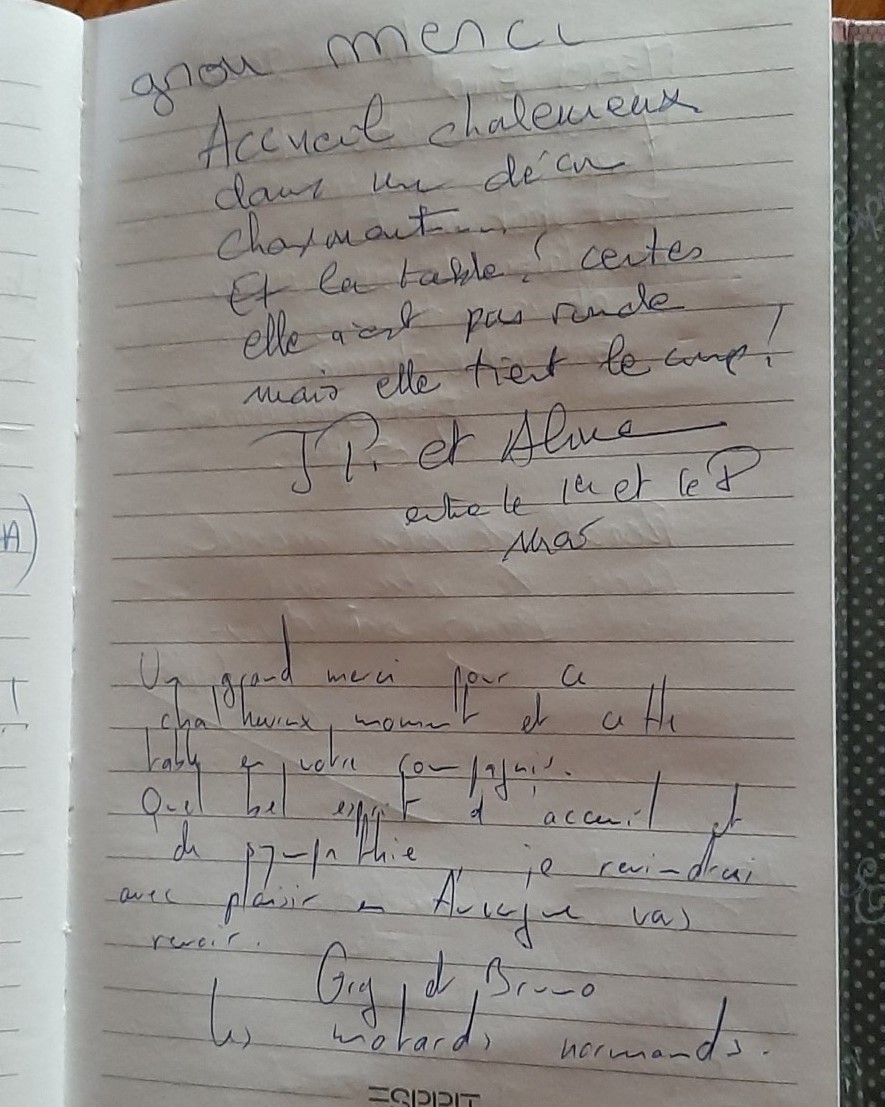 grou merci
Accueil chaleureux
dans un décor
charmant....
Et la table ! certes
elle n'est pas ronde
mais elle tient le coup !
J P. et Aline
entre le 1er et le 8
Mas
Un grand merci pour ce
chaltheureux moment et cette
table en votre compagnie.
Quel bel esprit d'accueil et
de sympathie, je reviendrai
avec plaisir en Auvergne vous
revoir.
Greg et Bruno
les motards normands.
ESPRIT
A)